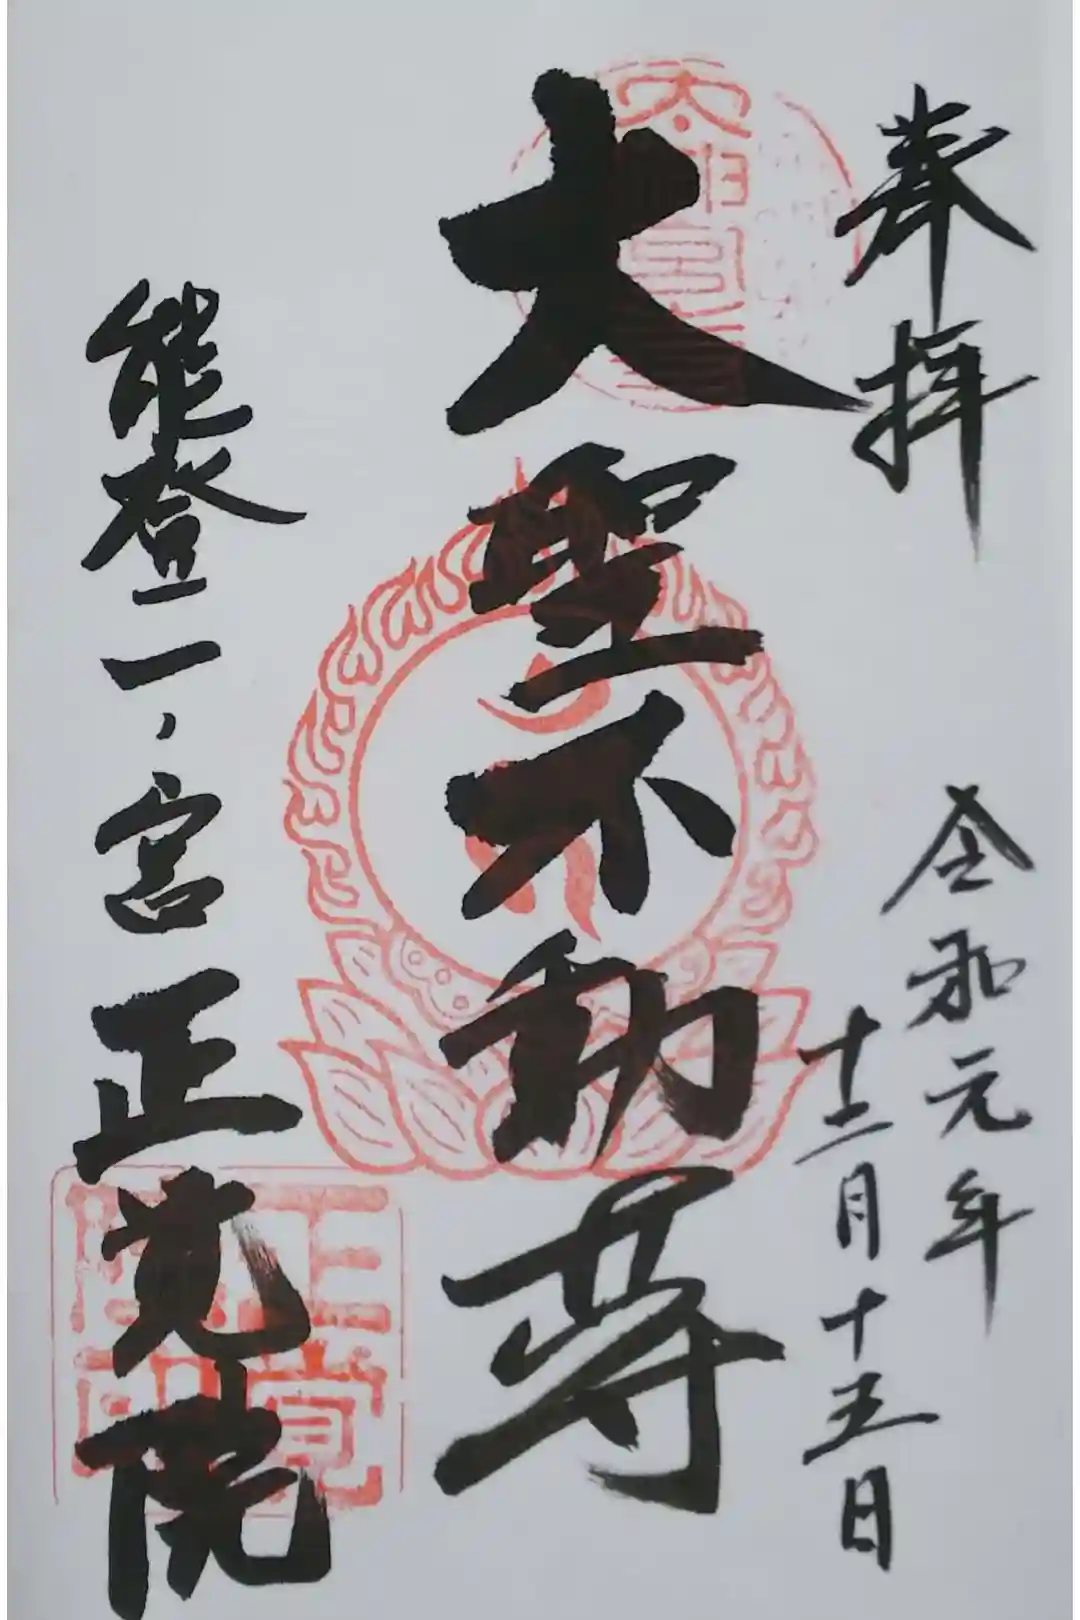 奉拝
令和元年
十二月十五日
大聖不動尊
能登一ノ宮 正覚院
正覚院印